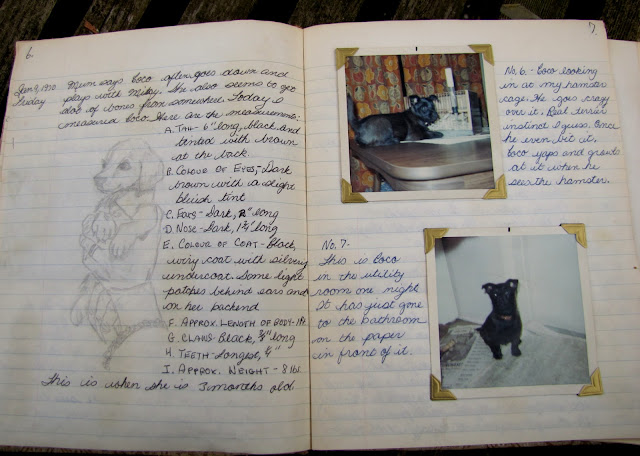 6.
Jan 9, 1970
Friday
Mum says Coco often goes down and
plays with Misty. She also seems to get
alot of bones from somewhere. Today I
measured Coco. Here are the measurements:
A. Tail - 6" long, black and
tinted with brown
at the back.
B. Colour of Eyes, Dark
brown with a slight
bluish tint
C. Ears - Dark, 2" long
D. Nose - Dark, 1 3/4" long
E. Colour of Coat - Black,
wiry coat with silvery
undercoat. Some light
patches behind ears and
on her backend
F. Approx. Length of Body - 1 ft.
G. Claws - Black, 3/8" long
H. Teeth - Longest, 1/4"
I. Approx. Weight - 8 lb.
This is when she is 3 months old
7.
No. 6 - Coco looking
in at my hamster
cage. He goes crazy
over it. Real terrier
instinct I guess. Once
he even bit it.
Coco yaps and growls
at it when he
sees the hamster.
No. 7 -
This is Coco
in the utility
room one night.
It has just gone
to the bathroom
on the paper
in front of it.